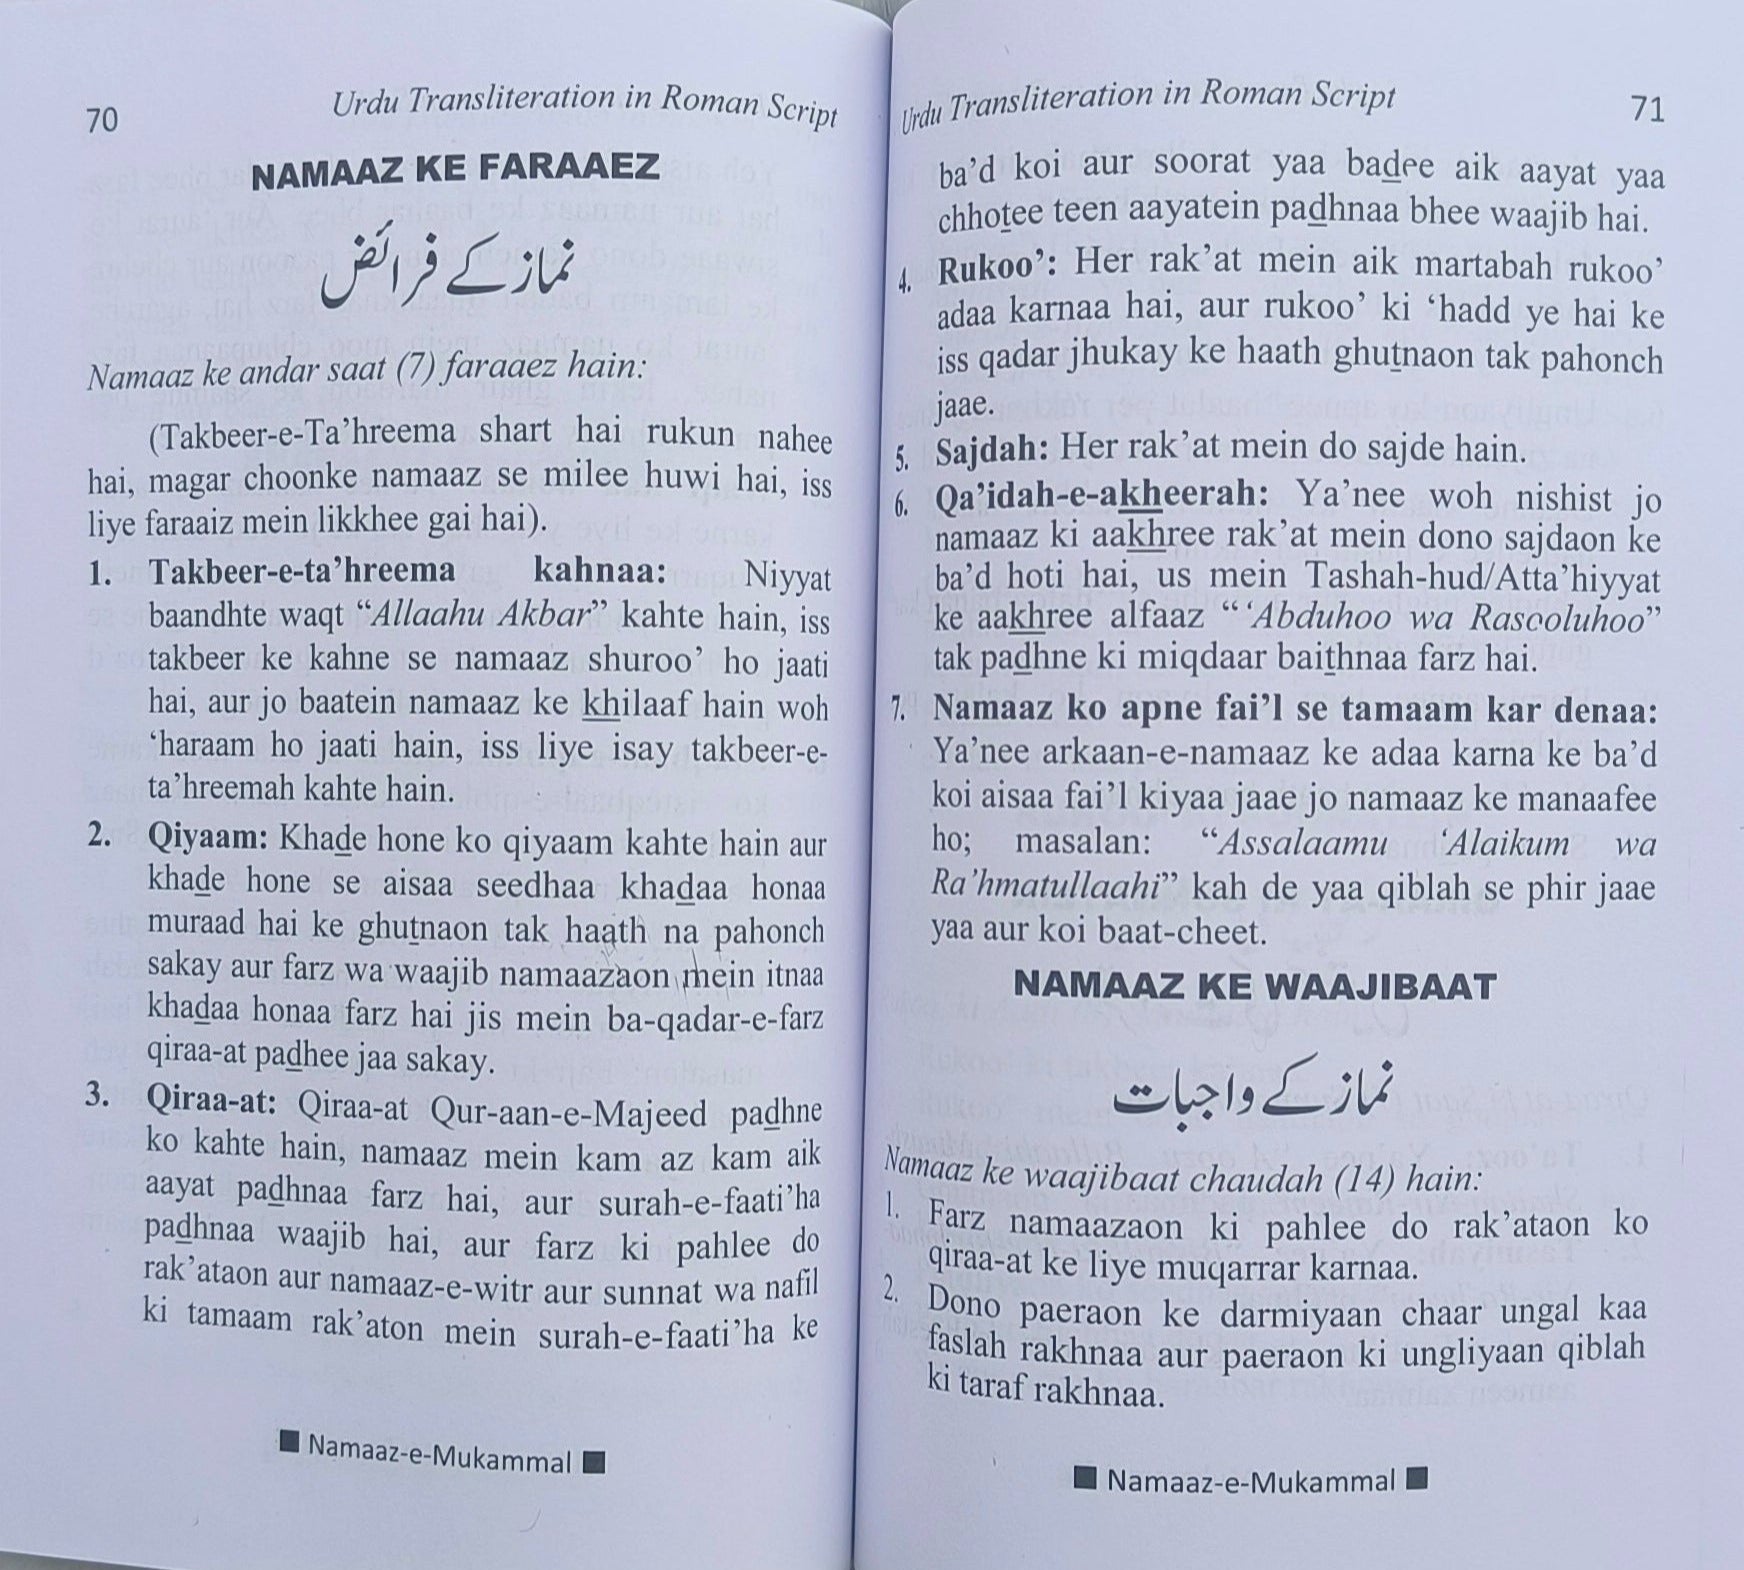 70
Urdu Transliteration in Roman Script
NAMAAZ KE FARAAEZ
نماز کے فرائض
Namaaz ke andar saat (7) faraaez hain:
(Takbeer-e-Ta’hreema shart hai rukun nahee
hai, magar choonke namaaz se milee huwi hai, iss
liye faraaiz mein likkhee gai hai).
1. Takbeer-e-ta’hreema kahnaa: Niyyat
baandhte waqt “Allaahu Akbar” kahte hain, iss
takbeer ke kahne se namaaz shuroo’ ho jaati
hai, aur jo baatein namaaz ke khilaaf hain woh
‘haraam ho jaati hain, iss liye isay takbeer-e-
ta’hreemah kahte hain.
2. Qiyaam: Khade hone ko qiyaam kahte hain aur
khade hone se aisaa seedhaa khadaa honaa
muraad hai ke ghutnaon tak haath na pahonch
sakay aur farz wa waajib namaazaon mein itnaa
khadaa honaa farz hai jis mein ba-qadar-e-farz
qiraa-at padhee jaa sakay.
3. Qiraa-at: Qiraa-at Qur-aan-e-Majeed padhne
ko kahte hain, namaaz mein kam az kam aik
aayat padhnaa farz hai, aur surah-e-faati’ha
padhnaa waajib hai, aur farz ki pahlee do
rak’ataon aur namaaz-e-witr aur sunnat wa nafil
ki tamaam rak’aton mein surah-e-faati’ha ke
■ Namaaz-e-Mukammal ■
Urdu Transliteration in Roman Script
71
ba’d koi aur soorat yaa badee aik aayat yaa
chhotee teen aayatein padhnaa bhee waajib hai.
4. Rukoo’: Her rak’at mein aik martabah rukoo’
adaa karnaa hai, aur rukoo’ ki ‘hadd ye hai ke
iss qadar jhukay ke haath ghutnaon tak pahonch
jaae.
5. Sajdah: Her rak’at mein do sajde hain.
6. Qa’idah-e-akheerah: Ya’nee woh nishist jo
namaaz ki aakhree rak’at mein dono sajdaon ke
ba’d hoti hai, us mein Tashah-hud/Atta’hiyyat
ke aakhree alfaaz “‘Abduhoo wa Rasooluhoo”
tak padhne ki miqdaar baithnaa farz hai.
7. Namaaz ko apne fai’l se tamaam kar denaa:
Ya’nee arkaan-e-namaaz ke adaa karna ke ba’d
koi aisaa fai’l kiyaa jaae jo namaaz ke manaafee
ho; masalan: “Assalaamu ‘Alaikum wa
Ra’hmatullaahi” kah de yaa qiblah se phir jaae
yaa aur koi baat-cheet.
NAMAAZ KE WAAJIBAAT
نماز کے واجبات
Namaaz ke waajibaat chaudah (14) hain:
1. Farz namaazaon ki pahlee do rak’ataon ko
qiraa-at ke liye muqarrar karnaa.
2. Dono paeraon ke darmiyaan chaar ungal kaa
faslah rakhnaa aur paeraon ki ungliyaan qiblah
ki taraf rakhnaa.
■ Namaaz-e-Mukammal ■